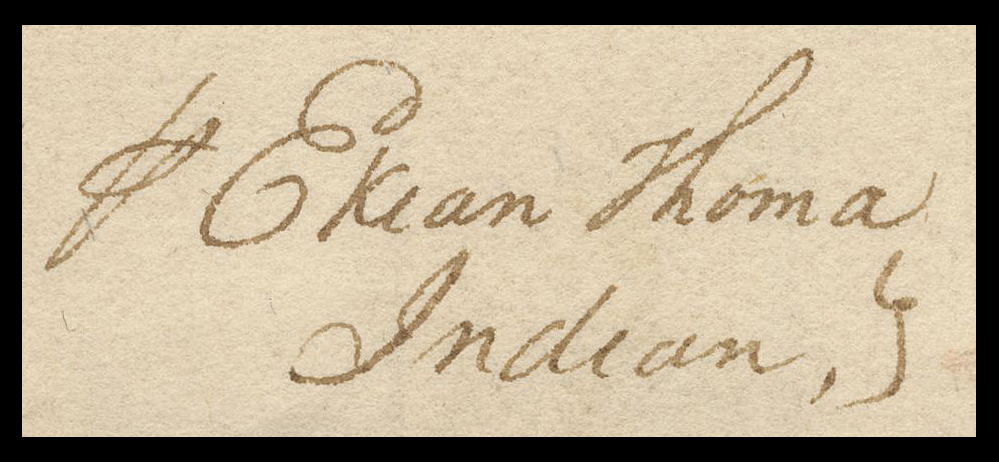 ⅌ Ekian Thoma
Indian, }